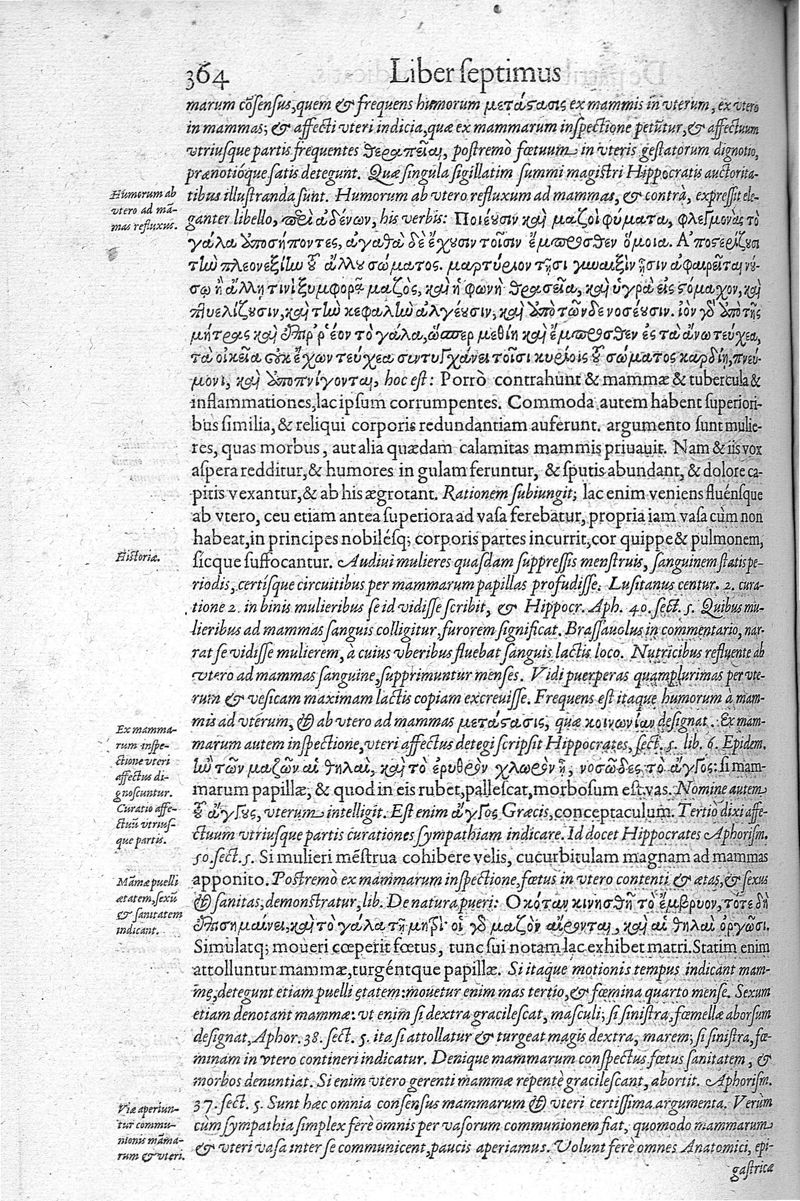 364 Liber septimus
marum cõsensus, quem & frequens humorum μετάστασις ex mammis in vterum, ex vtero
in mammas; & affecti vteri indicia, quæ ex mammarum inspectione petũtur, & affectuum
vtriusque partis frequentes θεραπεῖαι, postremò fœtuum in vteris gestatorum dignotio,
prænotióque satis detegunt. Quæ singula sigillatim summi magistri Hippocratis auctorita-
Humorum ab
vtero ad mã-
mas refluxus.
tibus illustranda sunt. Humorum ab vtero refluxum ad mammas, & contrà, expressit ele-
ganter libello, περὶ ἀδένων, his verbis: Ποιέυσιν καὶ μαζοὶ φύματα, φλεγμονὰς τὸ
γάλα ὑποσήποντες, ἀγαθὰ δὲ ἔχουσιν τοῖσιν ἔμπροσθεν ὅμοια. Ἀποστερίζουσι
τὴν πλεονεξίην τοῦ ἄλλου σώματος. μαρτύριον τῇσι γυναιξὶν ᾗσιν ἀφαιρεῖται νύ-
σῳ ἢ ἄλλῃ τινὶ ξυμφορᾷ μαζὸς, καὶ ἡ φωνὴ θρασεῖα, καὶ ὑγρὰ εἰς στόμαχον, καὶ
πτυελίζουσιν, καὶ τὴν κεφαλὴν ἀλγέυσιν, καὶ ὑπὸ τῶνδε νοσέυσιν. ἰὸν γὰρ ὑπὸ τῆς
μήτρας καὶ ἐπιῤῥέον τὸ γάλα, ὥσπερ μεθίη καὶ ἔμπροσθεν ἐς τὰ ἄνω τεύχεα,
τὰ οἰκεῖα οὐκ ἔχων τεύχεα συντυγχάνει τοῖσι κυρίοις τοῦ σώματος καρδίῃ, πνεύ-
μονι, καὶ ὑποπνίγονται, hoc est: Porrò contrahunt & mammæ & tubercula &
inflammationes, lac ipsum corrumpentes. Commoda autem habent superiori-
bus similia, & reliqui corporis redundantiam auferunt. argumento sunt mulie-
res, quas morbus, aut alia quædam calamitas mammis priuauit. Nam & iis vox
aspera redditur, & humores in gulam feruntur, & sputis abundant, & dolore ca-
pitis vexantur, & ab his ægrotant. Rationem subiungit; lac enim veniens fluénsque
ab vtero, ceu etiam antea superiora ad vasa ferebatur, propria iam vasa cùm non
habeat, in principes nobilésq; corporis partes incurrit, cor quippe & pulmonem,
Historiæ.
sicque suffocantur. Audiui mulieres quasdam suppressis menstruis, sanguinem statis pe-
riodis, certisque circuitibus per mammarum papillas profudisse. Lusitanus centur. 2. cura-
tione 2. in binis mulieribus se id vidisse scribit, & Hippocr. Aph. 40. sect. 5. Quibus mu-
lieribus ad mammas sanguis colligitur, furorem significat. Brassauolus in commentario, nar-
rat se vidisse mulierem, à cuius vberibus fluebat sanguis lactis loco. Nutricibus refluente ab
vtero ad mammas sanguine, supprimuntur menses. Vidi puerperas quamplurimas per vte-
rum & vesicam maximam lactis copiam excreuisse. Frequens est itaque humorum à mam-
mis ad vterum, & ab vtero ad mammas μετάστασις, quæ κοινωνίαν designat. Ex mam-
Ex mamma-
rum inspe-
ctione vteri
affectus di-
gnoscuntur.
marum autem inspectione, vteri affectus detegi scripsit Hippocrates, sect. 5. lib. 6. Epidem.
ἢν τῶν μαζῶν αἱ θηλαὶ, καὶ τὸ ἐρυθρὸν χλωρὸν ᾖ, νοσῶδες τὸ ἄγγος: si mam-
marum papillæ, & quod in eis rubet, pallescat, morbosum est vas. Nomine autem
Curatio affe-
ctuũ vtrius-
que partis.
τοῦ ἄγγους, vterum intelligit. Est enim ἄγγος Græcis, conceptaculum. Tertiò dixi affe-
ctuum vtriusque partis curationes sympathiam indicare. Id docet Hippocrates Aphorism.
50. sect. 5. Si mulieri mẽstrua cohibere velis, cucurbitulam magnam ad mammas
Mãmæ puelli
ætatem, sexũ
& sanitatem
indicant.
apponito. Postremò ex mammarum inspectione, fœtus in vtero contenti & ætas, & sexus
& sanitas, demonstratur, lib. De natura pueri: Ὁκόταν κινηθῇ τὸ ἔμβρυον, τότε δὴ
ἐπισημαίνει καὶ τὸ γάλα τῇ μητρί· οἱ γὰρ μαζοὶ αἴρονται, καὶ αἱ θηλαὶ ὀργῶσι.
Simulatq; moueri cœperit fœtus, tunc sui notam lac exhibet matri. Statim enim
attolluntur mammæ, turgéntque papillæ. Si itaque motionis tempus indicant mam-
mę, detegunt etiam puelli ętatem: mouetur enim mas tertio, & fœmina quarto mense. Sexum
etiam denotant mammæ: vt enim si dextra gracilescat, masculi; si sinistra, fœmellæ aborsum
designat, Aphor. 38. sect. 5. ita si attollatur & turgeat magis dextra, marem; si sinistra, fœ-
minam in vtero contineri indicatur. Denique mammarum conspectus fœtus sanitatem, &
morbos denuntiat. Si enim vtero gerenti mammæ repentè gracilescant, abortit. Aphorism.
Viæ aperiun-
tur commu-
nionis mãma-
rum & vteri.
37. sect. 5. Sunt hæc omnia consensus mammarum & vteri certissima argumenta. Verùm
cùm sympathia simplex ferè omnis per vasorum communionem fiat, quomodo mammarum
& vteri vasa inter se communicent, paucis aperiamus. Volunt ferè omnes Anatomici, epi-
gastricæ